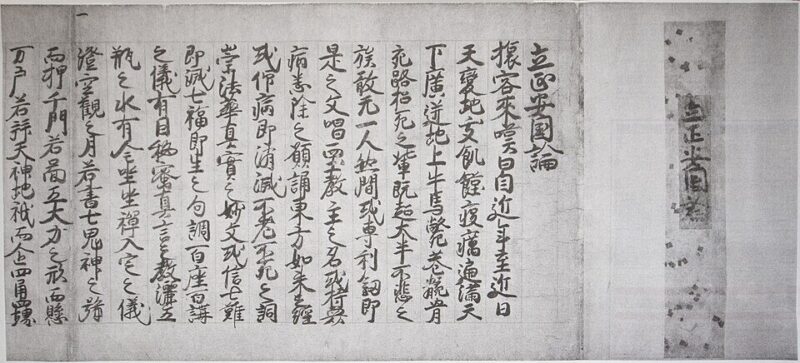 立正安国論
立正安国論
旅客来嘆曰自近年至近日
天變地夭飢饉疫癘遍満天
下廣迸地上牛馬斃巷骸骨
充路招死之輩既超大半不悲之
族敢无一人然間或専利釼即
是之文唱西土教主之名或恃衆
病悉除之願誦東方如来之經
或仰病即消滅不老不死之詞
崇法華真實之妙文或信七難
即滅七福即生之句調百座百講
之儀有因秘密真言之教灑五
瓶之水有全坐禪入定之儀
澄空觀之月若書七鬼神之号
而押千門若圖五大力之形而懸
万戸若拜天神地祇而企四角四堺
一